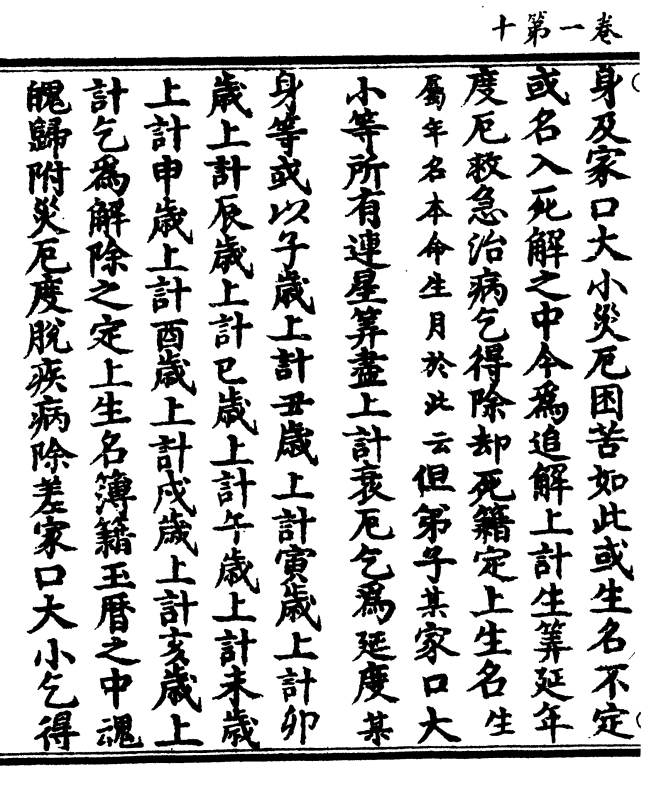 卷一第十
身及家口大小災厄困苦如此或生名不定
或名入死解之中今為追解上計生筭延年
度厄救急治病乞得除却死籍定上生名生
屬年名本命生月於此云但弟子某家口大
小等所有連星筭盡上計衰厄乞為延度某
身等或以子歲上計丑歲上計寅歲上計卯
歲上計辰歲上計巳歲上計午歲上計未歲
上計申歲上計酉歲上計戌歲上計亥歲上
計乞為解除之定上生名簿籍玉曆之中魂
魄歸附災厄度脫疾病除差家口大小乞得